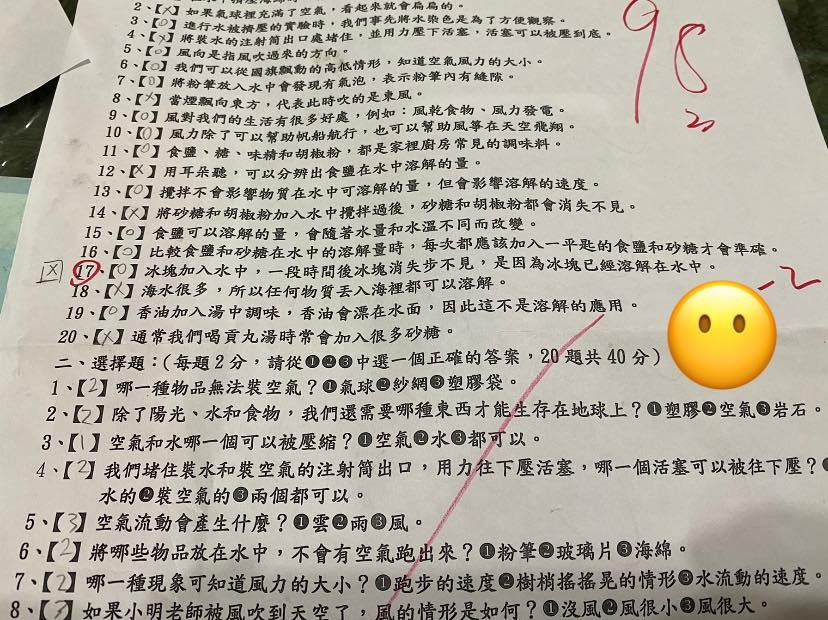 2、【X】如果氣球裡充滿了空氣，看起來就會扁扁的。
3、【O】進行水被擠壓的實驗時，我們事先將水染色是為了方便觀察。
4、【X】將裝水的注射筒出口處堵住，並用力壓下活塞，活塞可以被壓到底。
5、【O】風向是指風吹過來的方向。
6、【O】我們可以從國旗飄動的高低情形，知道空氣風力的大小。
7、【O】將粉筆放入水中會發現有氣泡，表示粉筆內有縫隙。
8、【X】當煙飄向東方，代表此時吹的是東風。
9、【O】風對我們的生活有很多好處，例如：風乾食物、風力發電。
10、【O】風力除了可以幫助帆船航行，也可以幫助風箏在天空飛翔。
11、【O】食鹽、糖、味精和胡椒粉，都是家裡廚房常見的調味料。
12、【X】用耳朵聽，可以分辨出食鹽在水中溶解的量。
13、【O】攪拌不會影響物質在水中可溶解的量，但會影響溶解的速度。
14、【X】將砂糖和胡椒粉加入水中攪拌過後，砂糖和胡椒粉都會消失不見。
15、【O】食鹽可以溶解的量，會隨著水量和水溫不同而改變。
16、【O】比較食鹽和砂糖在水中的溶解量時，每次都應該加入一平匙的食鹽和砂糖才會準確。
X 17、【O】冰塊加入水中，一段時間後冰塊消失步不見，是因為冰塊已經溶解在水中。
18、【X】海水很多，所以任何物質丟入海裡都可以溶解。
19、【O】香油加入湯中調味，香油會漂在水面，因此這不是溶解的應用。
20、【X】通常我們喝貢丸湯時常會加入很多砂糖。
二、選擇題：（每題2分，請從❶❷❸中選一個正確的答案，20題共40分）
1、【2】哪一種物品無法裝空氣？❶氣球❷紗網❸塑膠袋。
2、【2】除了陽光、水和食物，我們還需要哪種東西才能生存在地球上？❶塑膠❷空氣❸岩石。
3、【1】空氣和水哪一個可以被壓縮？❶空氣❷水❸都可以。
4、【2】我們堵住裝水和裝空氣的注射筒出口，用力往下壓活塞，哪一個活塞可以被往下壓？❶
水的❷裝空氣的❸兩個都可以。
5、【3】空氣流動會產生什麼？❶雲❷雨❸風。
6、【2】將哪些物品放在水中，不會有空氣跑出來？❶粉筆❷玻璃片❸海綿。
7、【2】哪一種現象可知道風力的大小？❶跑步的速度❷樹梢搖搖晃的情形❸水流動的速度。
8、【3】如果小明老師被風吹到天空了，風的情形是如何？❶沒風❷風很小❸風很大。
98
-2